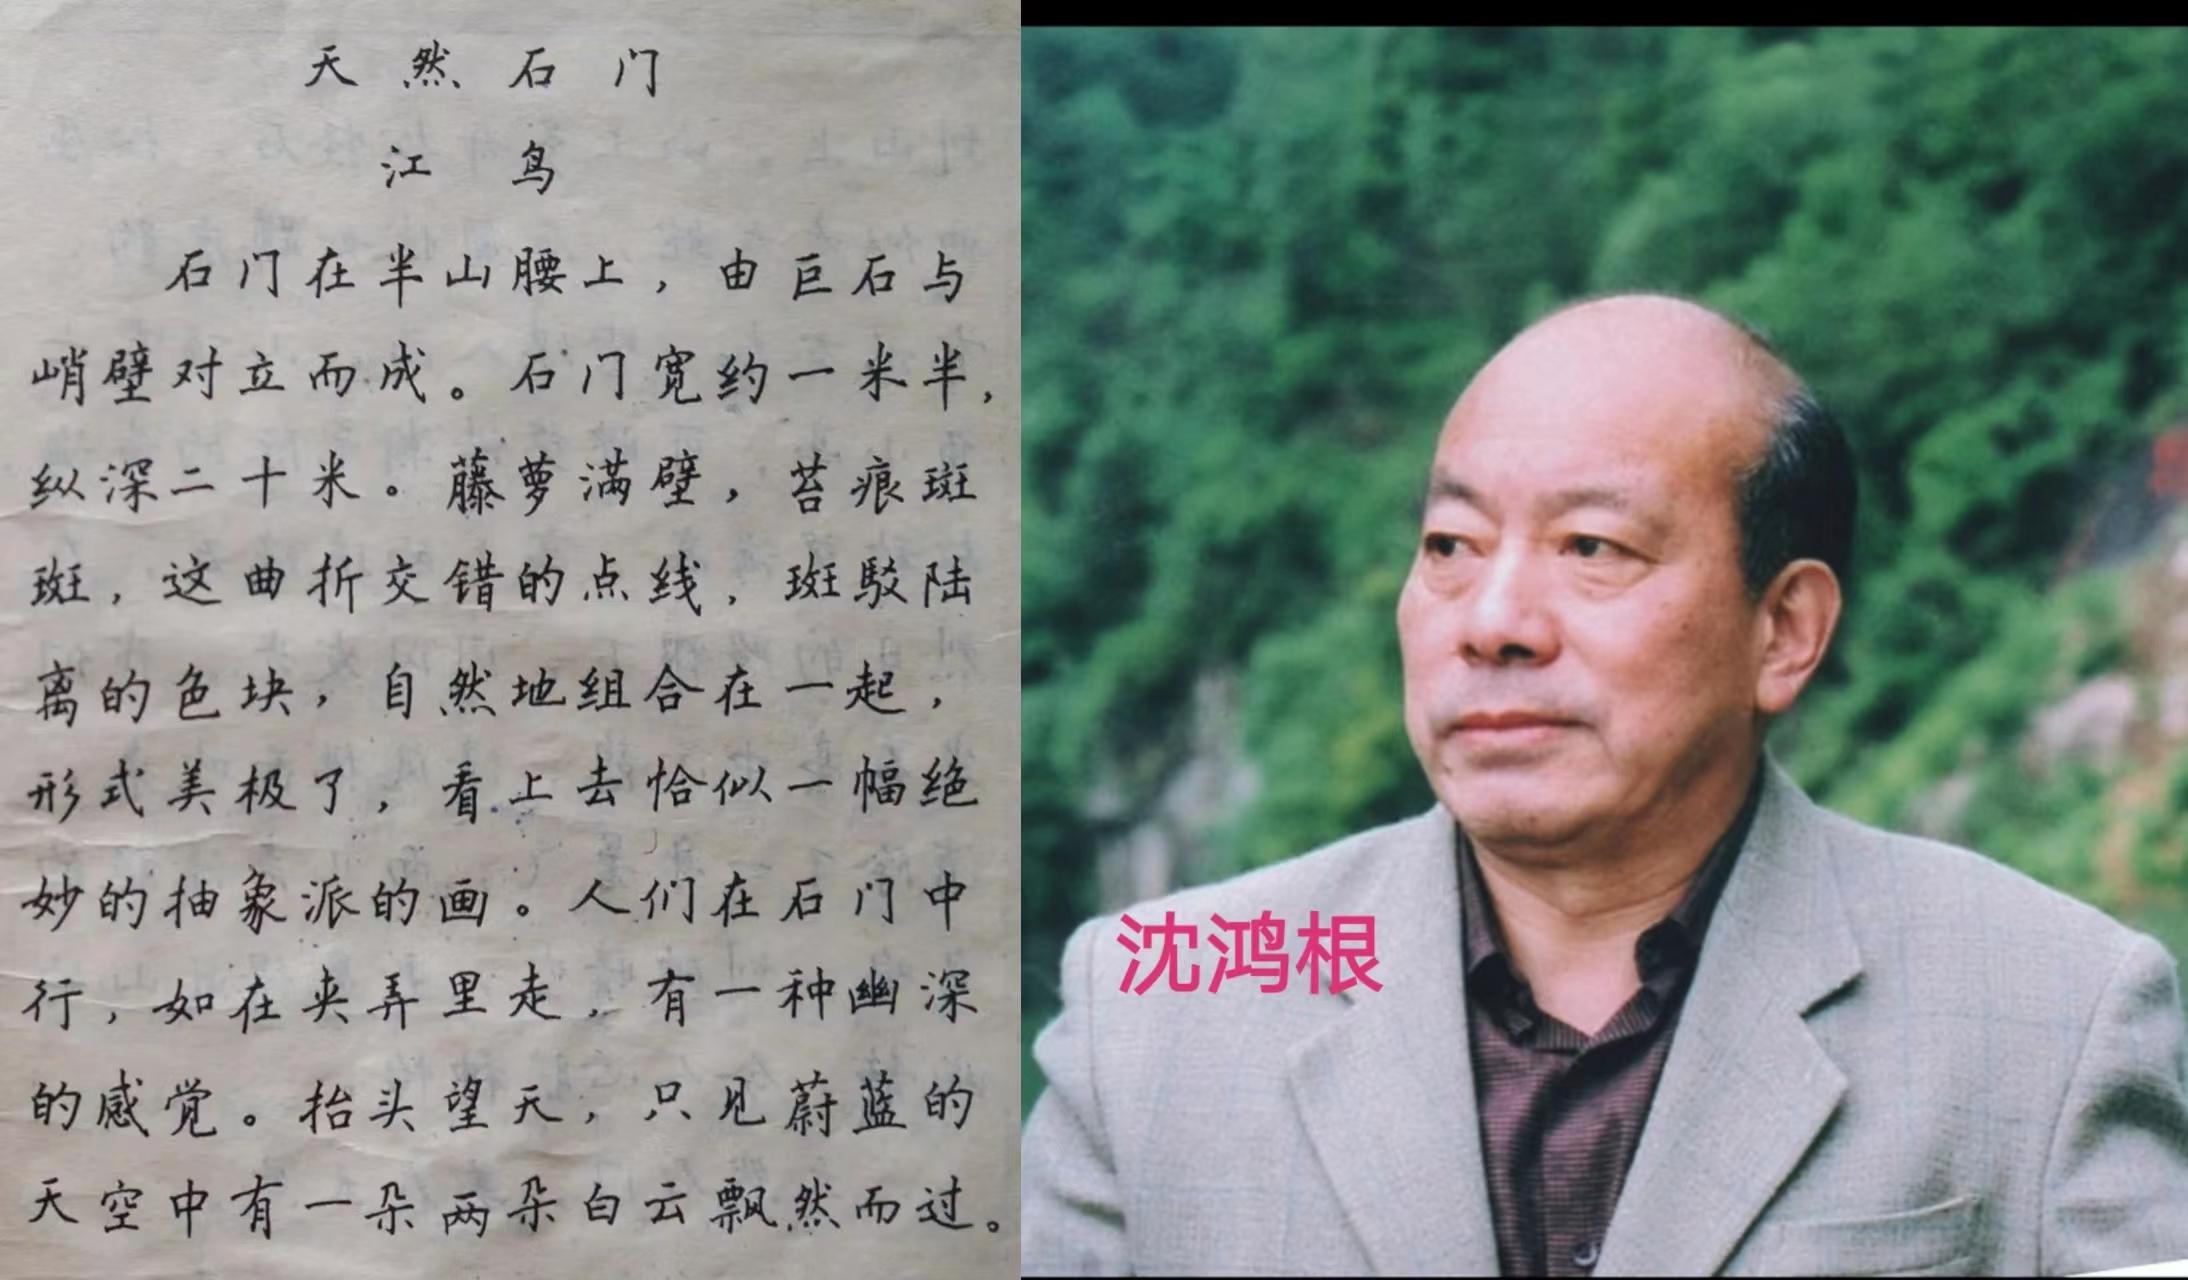 天然石门
江鸟
石门在半山腰上，由巨石与
峭壁对立而成。石门宽约一米半，
纵深二十米。藤萝满壁，苔痕斑
斑，这曲折交错的点线，斑驳陆
离的色块，自然地组合在一起，
形式美极了，看上去恰似一幅绝
妙的抽象派的画。人们在石门中
行，如在夹弄里走，有一种幽深
的感觉。抬头望天，只见蔚蓝的
天空中有一朵两朵白云飘然而过。
沈鸿根